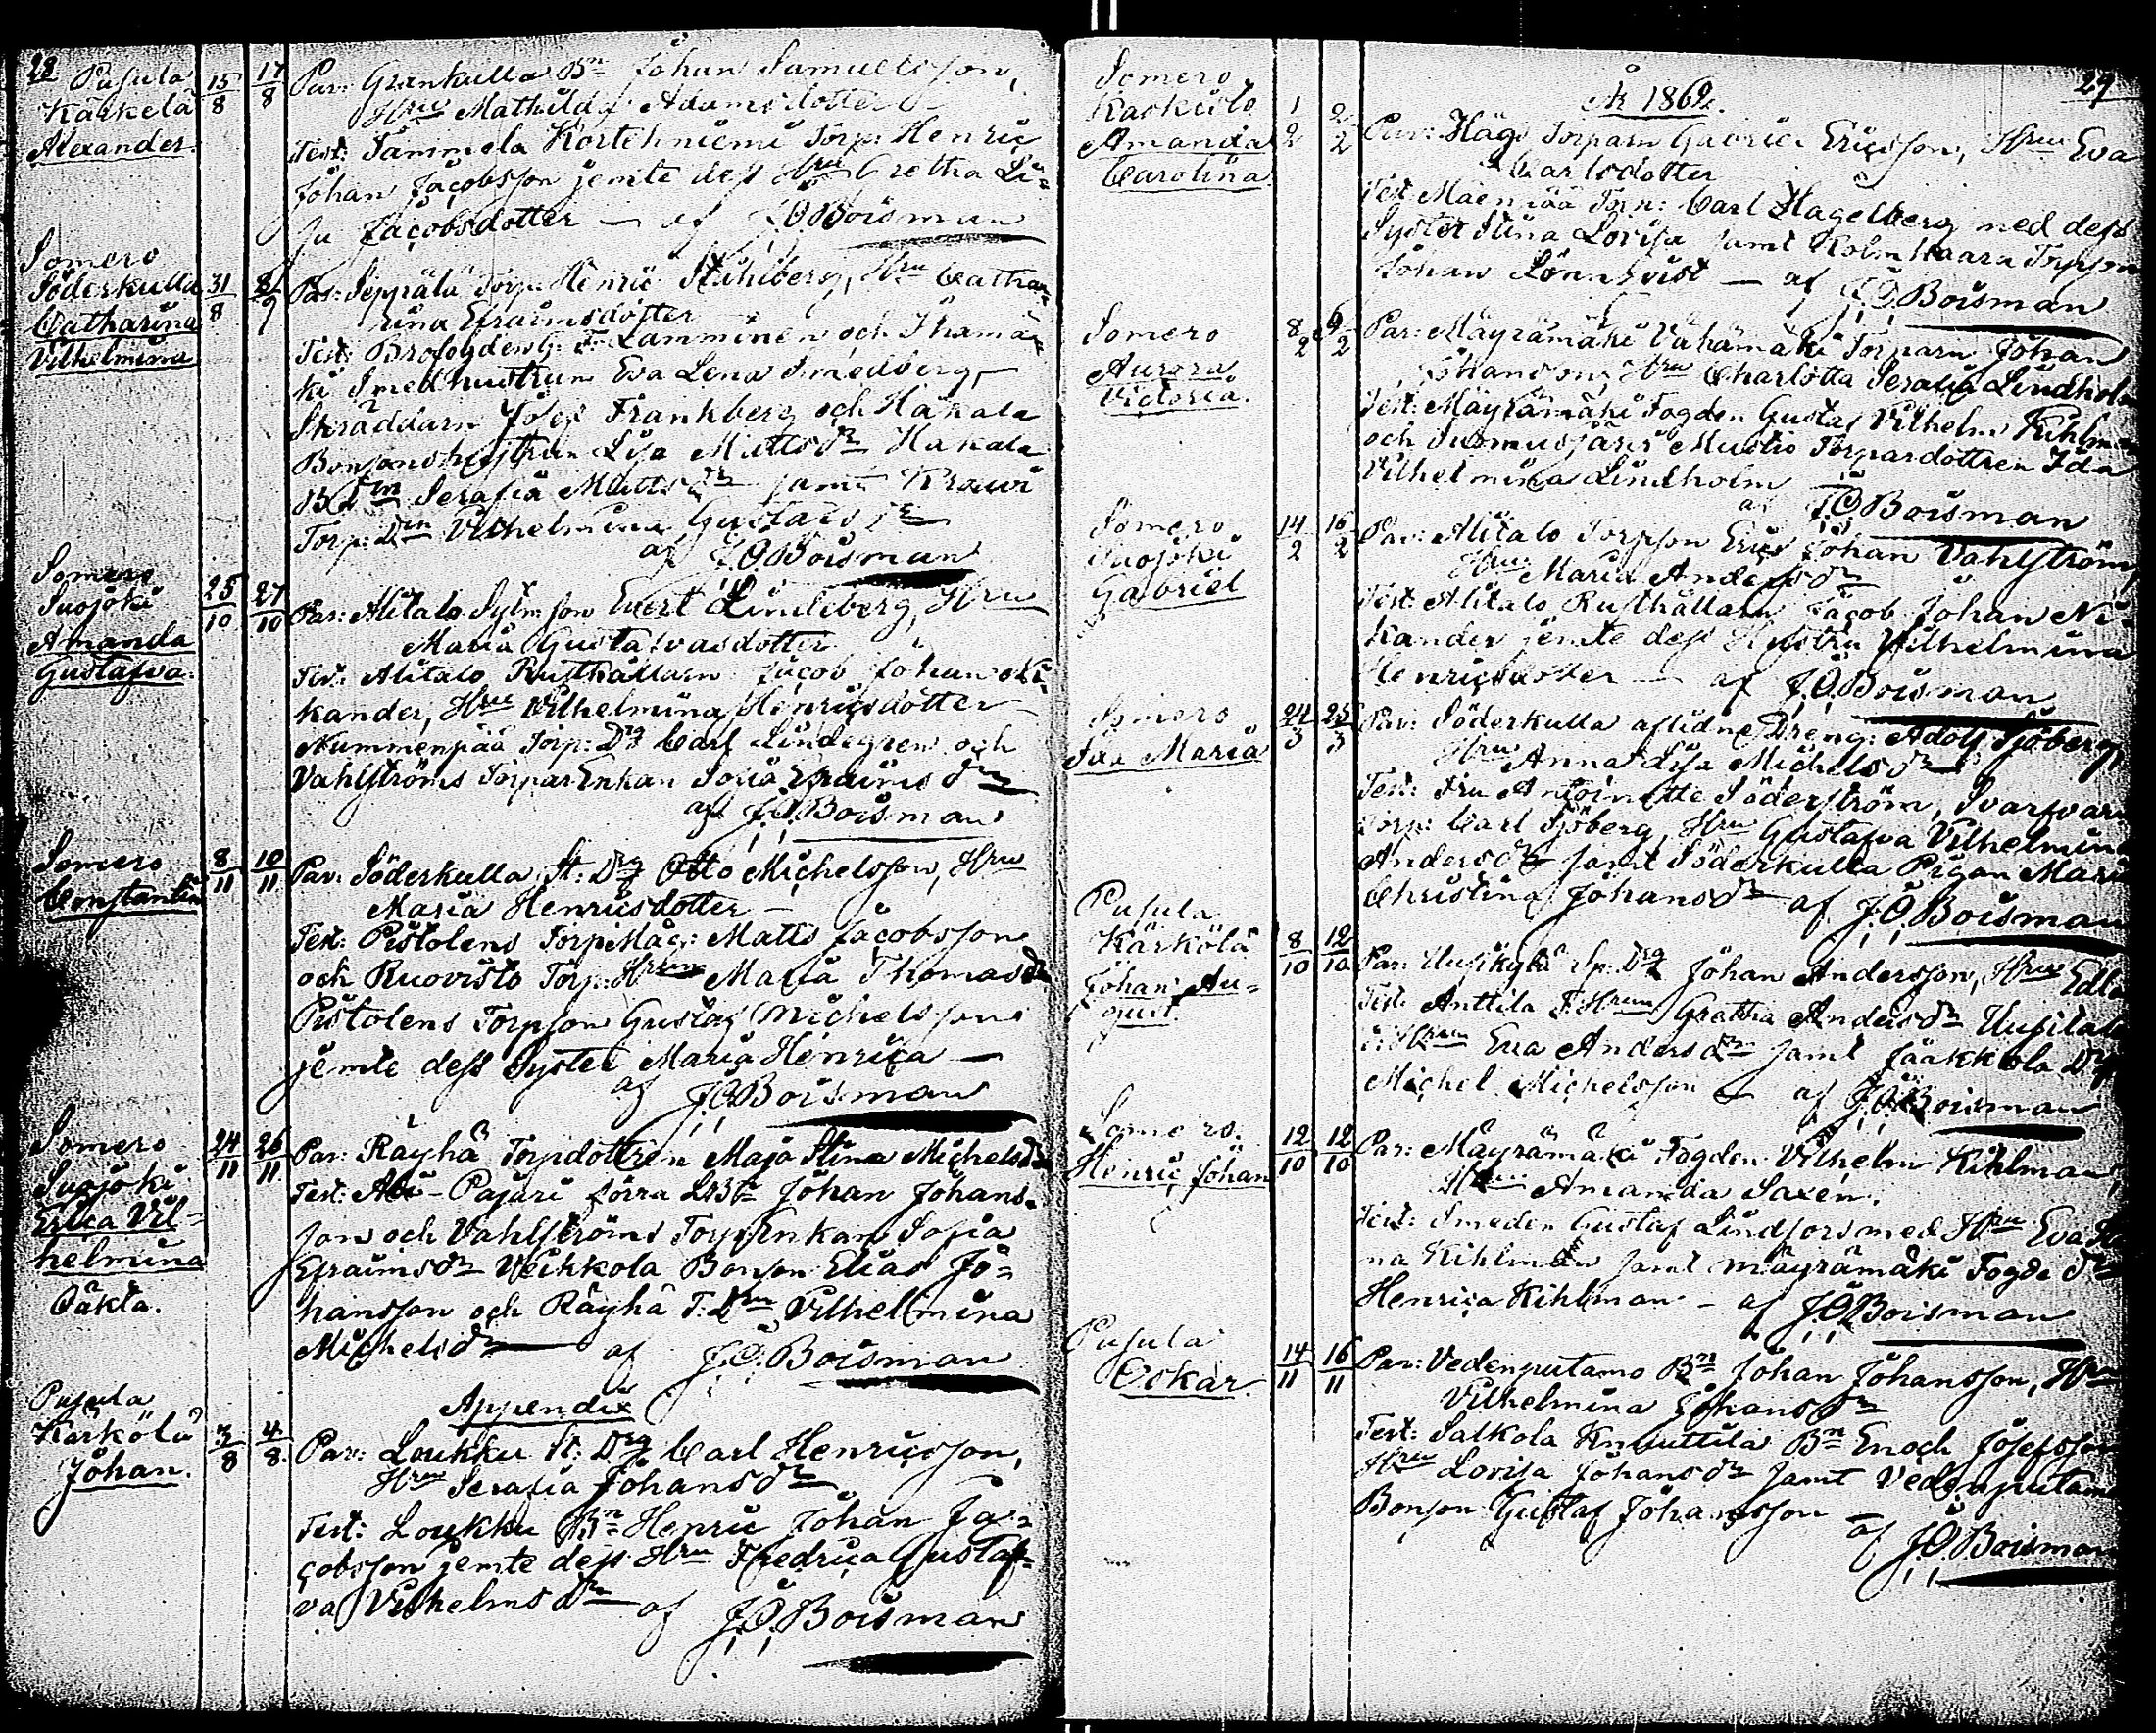 28
Pusula
Kärkelä
Alexander.
15/8 17/8
Par: Grankulla Bn Johan Samuelsson,
Hru Mathilda Adamsdotter
Test: Tammela Kortehniemi Torp: Henric
Johan Jacobsson jemte dess Hru Gretha Li=
sa Jacobsdotter — af J.O. Boisman
Somero
Söderkulla
Catharina
Vilhelmina
31/8
Par: Seppälä Torp: Henric Ståhlberg, Hru Catha=
rina Efraimsdotter
Test: Brofogden G: F: Lamminen och Ihamä=
ki Smedhustrun Eva Lena Smedberg,
Skräddarn Josef Frankberg och Hakala
Bonsonshustrun Lisa Mattsdr Hakala
B.Dn Serafia Mattsdr samt Krouvi
Torp: Dn Vilhelmina Gustafsdr
af J.O. Boisman
Somero
Suojoki
Amanda
Gustafva.
25/10 27/10
Par: Alitalo Sytn son Evert Lindeberg, Hru
Maria Gustafvasdotter
Test: Alitalo Rusthållarn Jacob Johan Ni=
kander, Hru Vilhelmina Henricsdotter
Nummenpää Torp: Drg Carl Lindegren och
Vahlströms TorparEnkan Sofia Efraimsdr
af J.O. Boisman
Somero
Constantin
8/11 10/11
Par: Söderkulla St: Drg Otto Michelsson, Hru
Maria Henricsdotter —
Test: Pistolens Torp Måg: Matts Jacobsson
och Ruovisto Torp: Hrun Maria Thomasdr
Pistolens Torpson Gustaf Michelsson
jemte dess Syster Maria Henrica —
af J.O. Boisman
Somero
Suojoki
Erica Vil=
helmina
Oäkta.
24/11 26/11
Par: Räyhä Torpdottren Maja Stina Michelsdr
Test: Ali-Pajari förra Bn Johan Johans=
son och Vahlströms TorpEnkan Sofia
Efraimsdr Veikkola Bonson Elias Jo=
hansson och Räyhä T: Dn Vilhelmina
Michelsdr — af J.O. Boisman
Appendix
Pusula
Kärkölä
Johan.
3/8 4/8.
Par: Loukku St: Drg Carl Henricsson,
Hru Serafia Johansdr
Test: Loukku Bn Henric Johan Ja=
cobsson jemte dess Hru Fredrica Gustaf=
va Vilhelmsdr — af J.O. Boisman
29
År 1869.
Somero
Kaskisto
Amanda
Carolina
1/2 2/2
Par: Häg Torparn Gabriel Ericsson, Hru Eva
Carlsdotter
Test: Mäenpää Torp: Carl Hagelberg med dess
Syster Stina Lovisa samt Kolmhaara Torpson
Johan Lönnqvist — af J.O. Boisman
Somero
Aurora
Victoria.
8/2 9/2
Par: Mäyrämäki Vähämäki Torparn Johan
Johansson, Hru Charlotta Serafia Lindholm
Test: Mäyrämäki Fogden Gustaf Vilhelm Kihlman
och Suomusjärvi Mustio Torpardottren Ida
Vilhelmina Lindholm
af J.O. Boisman
Somero
Suojoki
Gabriel
14/2 16/2
Par: Alitalo Torpson Eric Johan Vahlström,
Hru Maria Andersdr
Test: Alitalo Rusthållarn Jacob Johan Ni=
kander jemte dess Hustru Vilhelmina
Henricsdotter — af J.O. Boisman
Somero
Ida Maria
24/3 25/3
Par: Söderkulla aflidne Dreng: Adolf Sjöberg,
Hru Anna Lisa Michelsdr
Test: Fru Antoinette Söderström, Svarfvars
Torp: Carl Sjöberg, Hru Gustafva Vilhelmina
Andersdr samt Söderkulla Pigan Maria
Christina Johansdr — af J.O. Boisman
Pusula
Kärkölä
Johan Au=
gust.
8/10 12/10
Par: Uusikylä Sp: Drg Johan Andersson, Hru Edla
Test: Anttila T.Hrun Gretha Andersdr Uusitalo
Hrun Eva Andersdr samt Jääkkola Drg
Michel Michelsson af J.O. Boisman
Somero.
Henric Johan
12/10 12/10
Par: Mäyrämäki Fogden Vilhelm Kihlman,
Hru Amanda Saxén.
Test: Smeden Gustaf Lindfors med Hru Eva Le
na Kihlman samt Mäyrämäki Fogde dr
Henrica Kihlman — af J.O. Boisman
Pusula
Oskar.
14/11 16/11
Par: Vedenputamo Bn Johan Johansson, Hru
Vilhelmina Johansdr
Test: Salkola Knuuttila Bn Enoch Josefsson
Hru Lovisa Johansdr samt Vedenputamo
Bonson Gustaf Johansson —
af J.O. Boisman